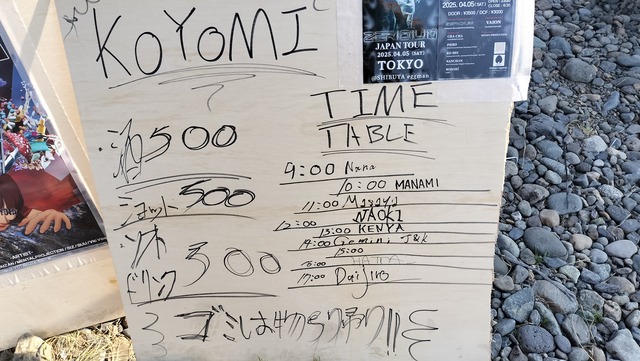 KOYOMI
JAPAN TOUR
2025.04.05 (SAT)
TOKYO
@SHIBUYA eggman
2025.04.05(SAT)
DOOR : ¥3500 / DCF : ¥3000
TIME
TABLE
・酒 500
ショット 500
ソフト
ドリンク 300
9:00 Nana
10:00 MANAMI
11:00 Masaya
12:00 NAOKI
13:00 KENYA
14:00 Gemini J&K
15:00
16:00
17:00 Daijiro
ゴミは物ち帰り!!
-ARTIST-